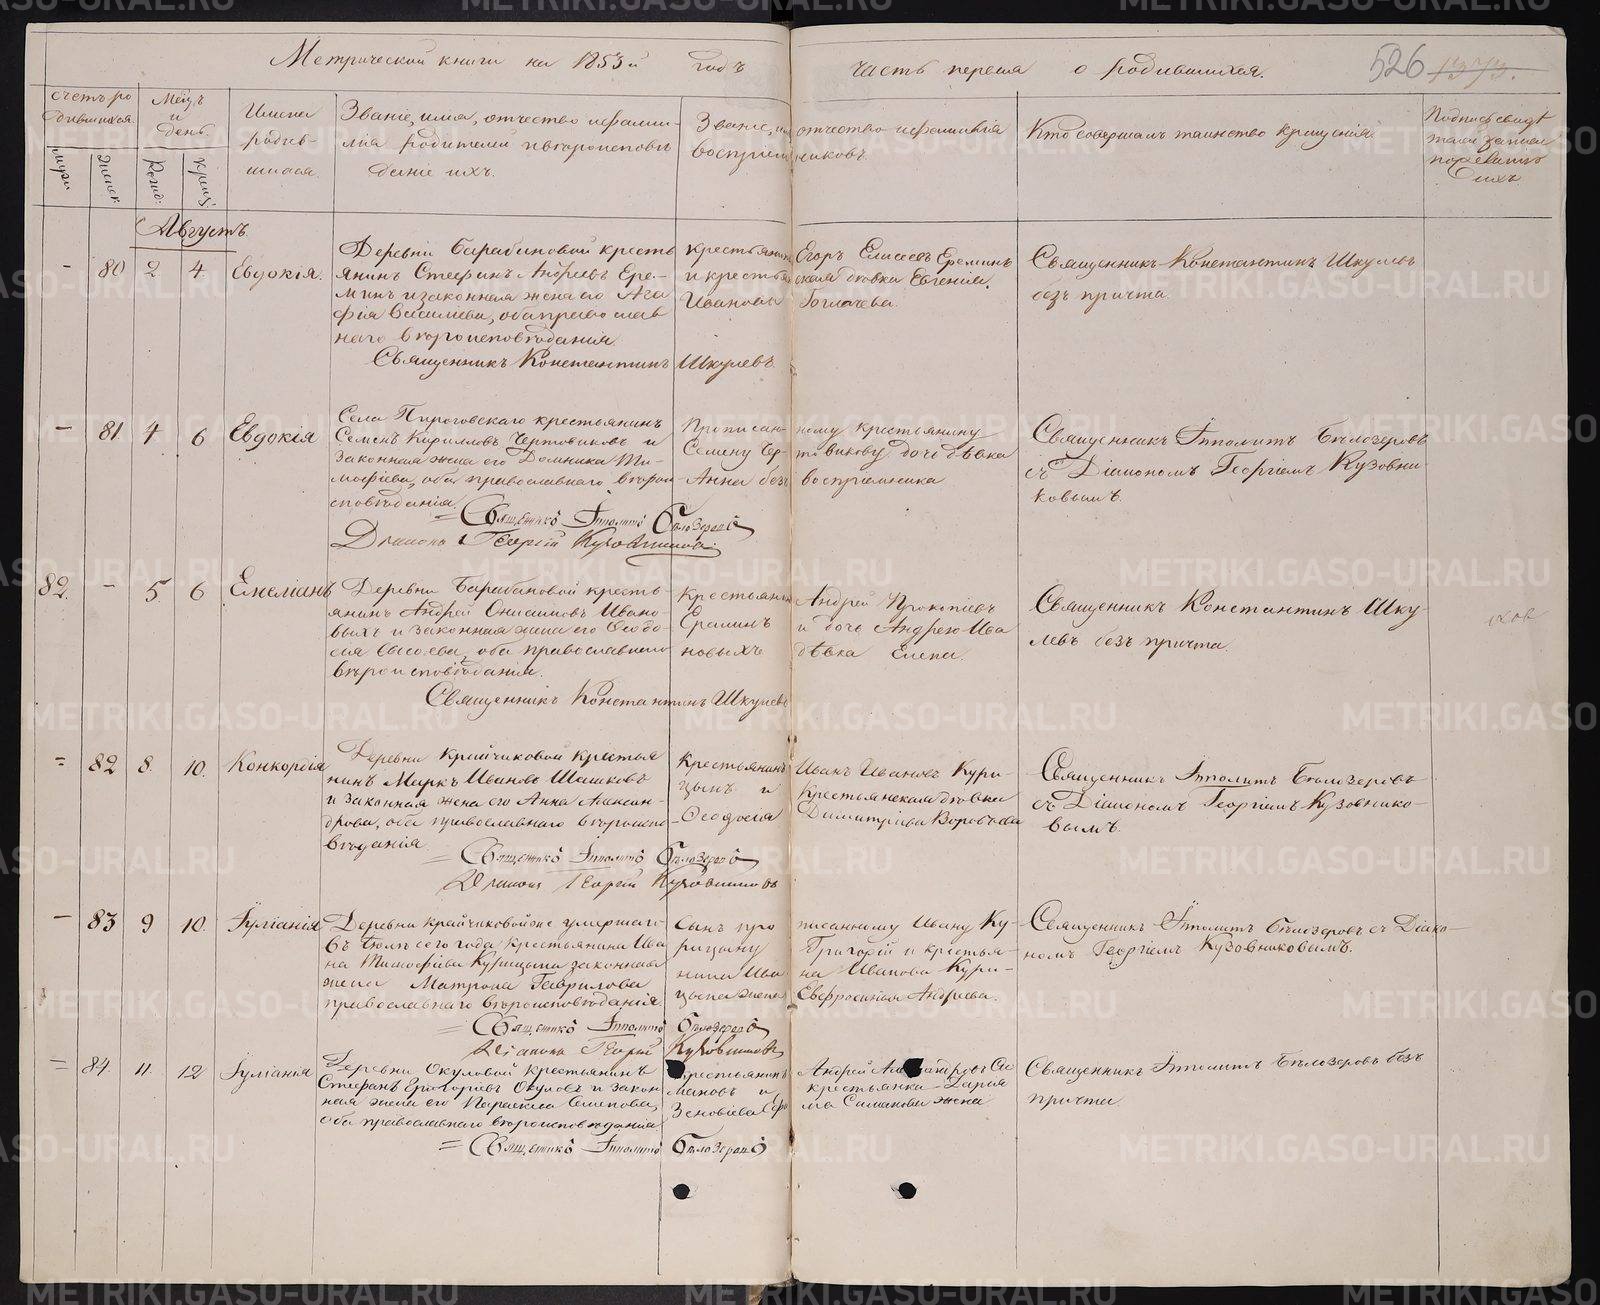 Метрической книги на 1853й годъ часть первая о родившихся. 526 1373.
счетъ ро
дившихся
Мѣсяцъ
и
день
Имена
родив-
шихся.
Званіе, имя, отчество и фами-
лія родителей и вѣроисповѣ
даніе ихъ.
Званіе, им отчество и фамилія
воспріем никовъ.
Кто совершалъ таинство крещенія.
муж.
женск.
Рожд:
крещ:
Августъ
- 80 2 4. Евдокія.
Деревни Барабановой кресть
янинъ Стефанъ Андреевъ Ере-
минъ и законная жена его Ага
фія Васильева, оба православ
наго вѣроисповѣданія.
Священникъ Константинъ Шкулевъ.
крестьянинъ Егоръ Елисеевъ Ереминъ
и крестьян ская дѣвка Евгенія
Иванова
Священникъ Константинъ Шкулевъ
безъ причта.
- 81. 4 6 Евдокія
Села Пироговскаго крестьянинъ
Семенъ Кириловъ Чертовиковъ и
законная жена его Домника Ти-
мофѣева, оба православнаго вѣрои
сповѣданія.
= Священникъ Ипполитъ Бѣлозеровъ
Діаконъ Георгій Кузовниковъ
Приписан- ному крестьянину
Семену Чер- товикову дочь дѣвка
Анна безъ воспріемника
Священникъ Ипполитъ Бѣлозеровъ
съ Діакономъ Георгіемъ Кузовни-
ковымъ.
82. - 5. 6 Емеліанъ
Деревни Барабановой кресть-
янинъ Андрей Онисимовъ Ивано-
выхъ и законная жена его Ѳеодо-
сія Сысоева, оба православнаго
вѣроисповѣданія.
Священникъ Константинъ Шкулевъ
Крестьянинъ Андрей Прокопіевъ
Ереминъ и дочь Андрею Ива
новыхъ дѣвка Елена.
Священникъ Константинъ Шку-
левъ безъ причта.
= 82 8. 10. Конкордія
Деревни Крайчиковой крестья
нинъ Маркъ Ивановъ Шашковъ
и законная жена его Анна Алексан-
дрова, оба православнаго вѣроиспо-
вѣданія
= Священникъ Ипполитъ Бѣлозеровъ
Діаконъ Георгій Кузовниковъ
Крестьянинъ Иванъ Ивановъ Кури-
цынъ и Крестьянская дѣвка
Ѳеодосія Димитріева Воробьева
Священникъ Ипполитъ Бѣлозеровъ
съ Діакономъ Георгіемъ Кузовнико-
вымъ.
- 83 9 10. Іуліанія
Деревни Крайчиковой же умершаго
въ Іюлѣ сего года крестьянина Ива
на Тимофѣева Курицына законная
жена Матрона Гаврилова
православнаго вѣроисповѣданія.
= Священникъ Ипполитъ Бѣлозеровъ
Діаконъ Георгій Кузовниковъ
Сынъ при писанному Ивану Ку-
рицыну Григорій и крестья-
нина Ива на Иванова Кури-
цына жена Евфросинія Андреева.
Священникъ Ипполитъ Бѣлозеровъ съ Діако-
номъ Георгіемъ Кузовниковымъ.
= 84. 11. 12 Іуліанія
Деревни Окуловой крестьянинъ
Стефанъ Григорьевъ Окуловъ и закон
ная жена его Параскева Семенова,
оба православнаго вѣроисповѣданія
= Священникъ Ипполитъ Бѣлозеровъ
Крестьянинъ Андрей Си
мановъ и крестьянка Дарія
Зеновіева Симанова жена
Священникъ Ипполитъ Бѣлозеровъ безъ
причта
METRIKI.GASO-URAL.RU